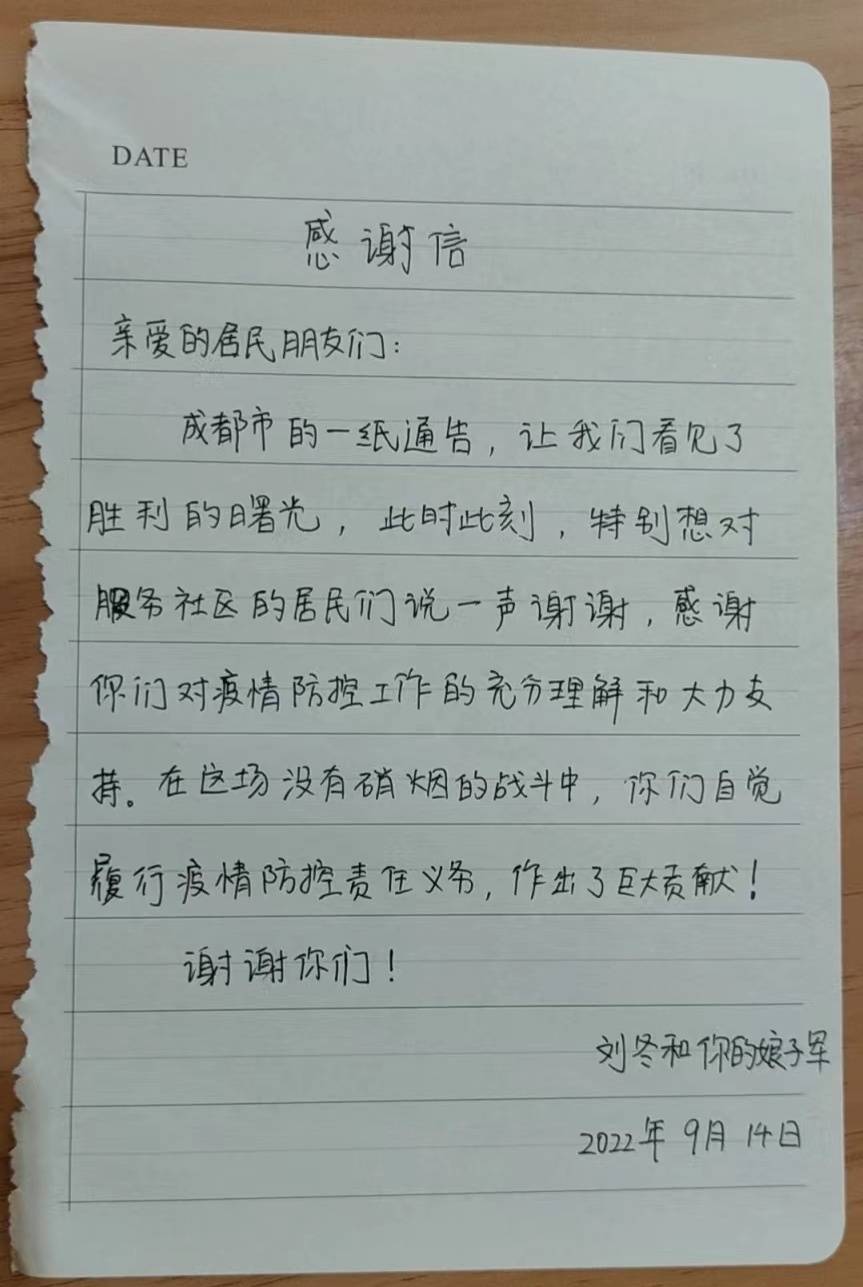 DATE
感谢信
亲爱的居民朋友们：
成都市的一纸通告，让我们看见了
胜利的曙光，此时此刻，特别想对
服务社区的居民们说一声谢谢，感谢
你们对疫情防控工作的充分理解和大力支
持。在这场没有硝烟的战斗中，你们自觉
履行疫情防控责任义务，作出了巨大贡献！
谢谢你们！
刘冬和你的娘子军
2022年9月14日